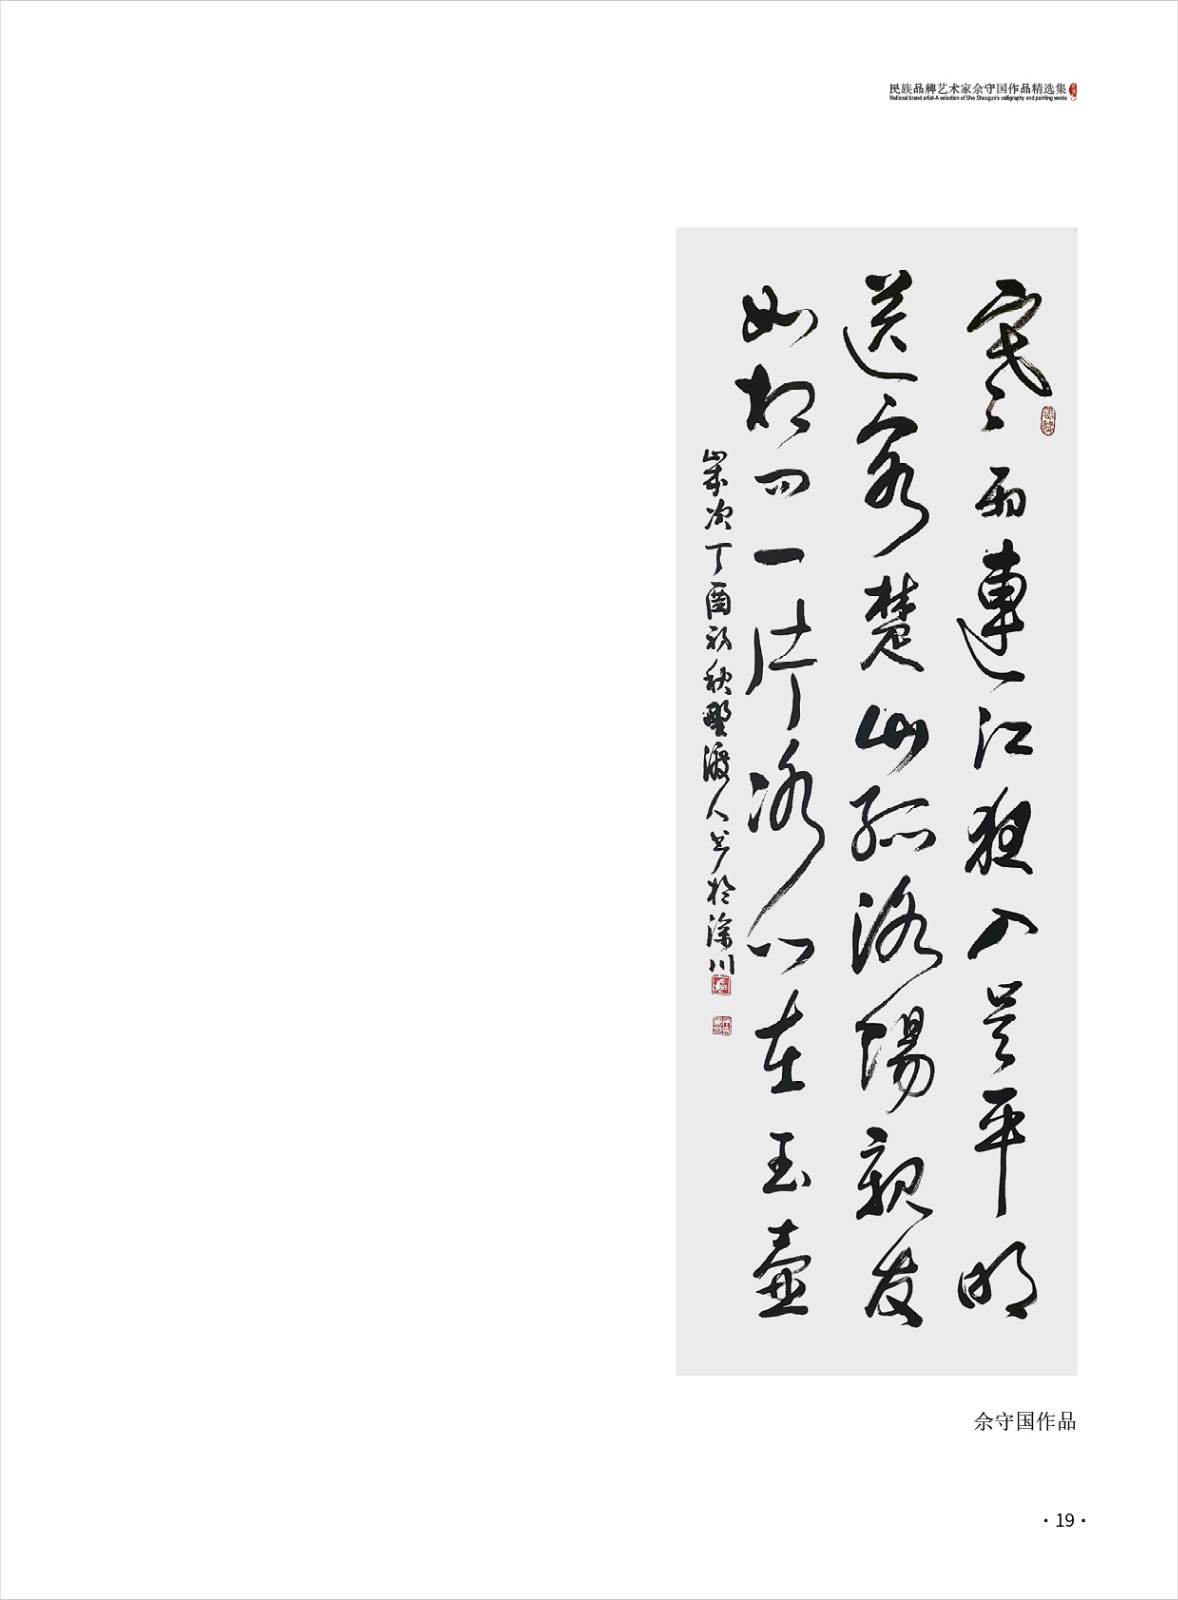 民族品牌艺术家佘守国作品精选集
National brand artist-A selection of She Shouguo's calligraphy and painting works
寒雨連江夜入吴平明
送客楚山孤洛陽親友
如相问一片冰心在玉壺
歲次丁酉初秋野渡人书於川
佘守国作品
·19·